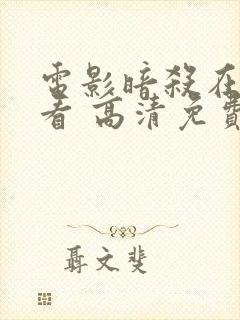 電影暗殺在
看 高清免費
聶文斐